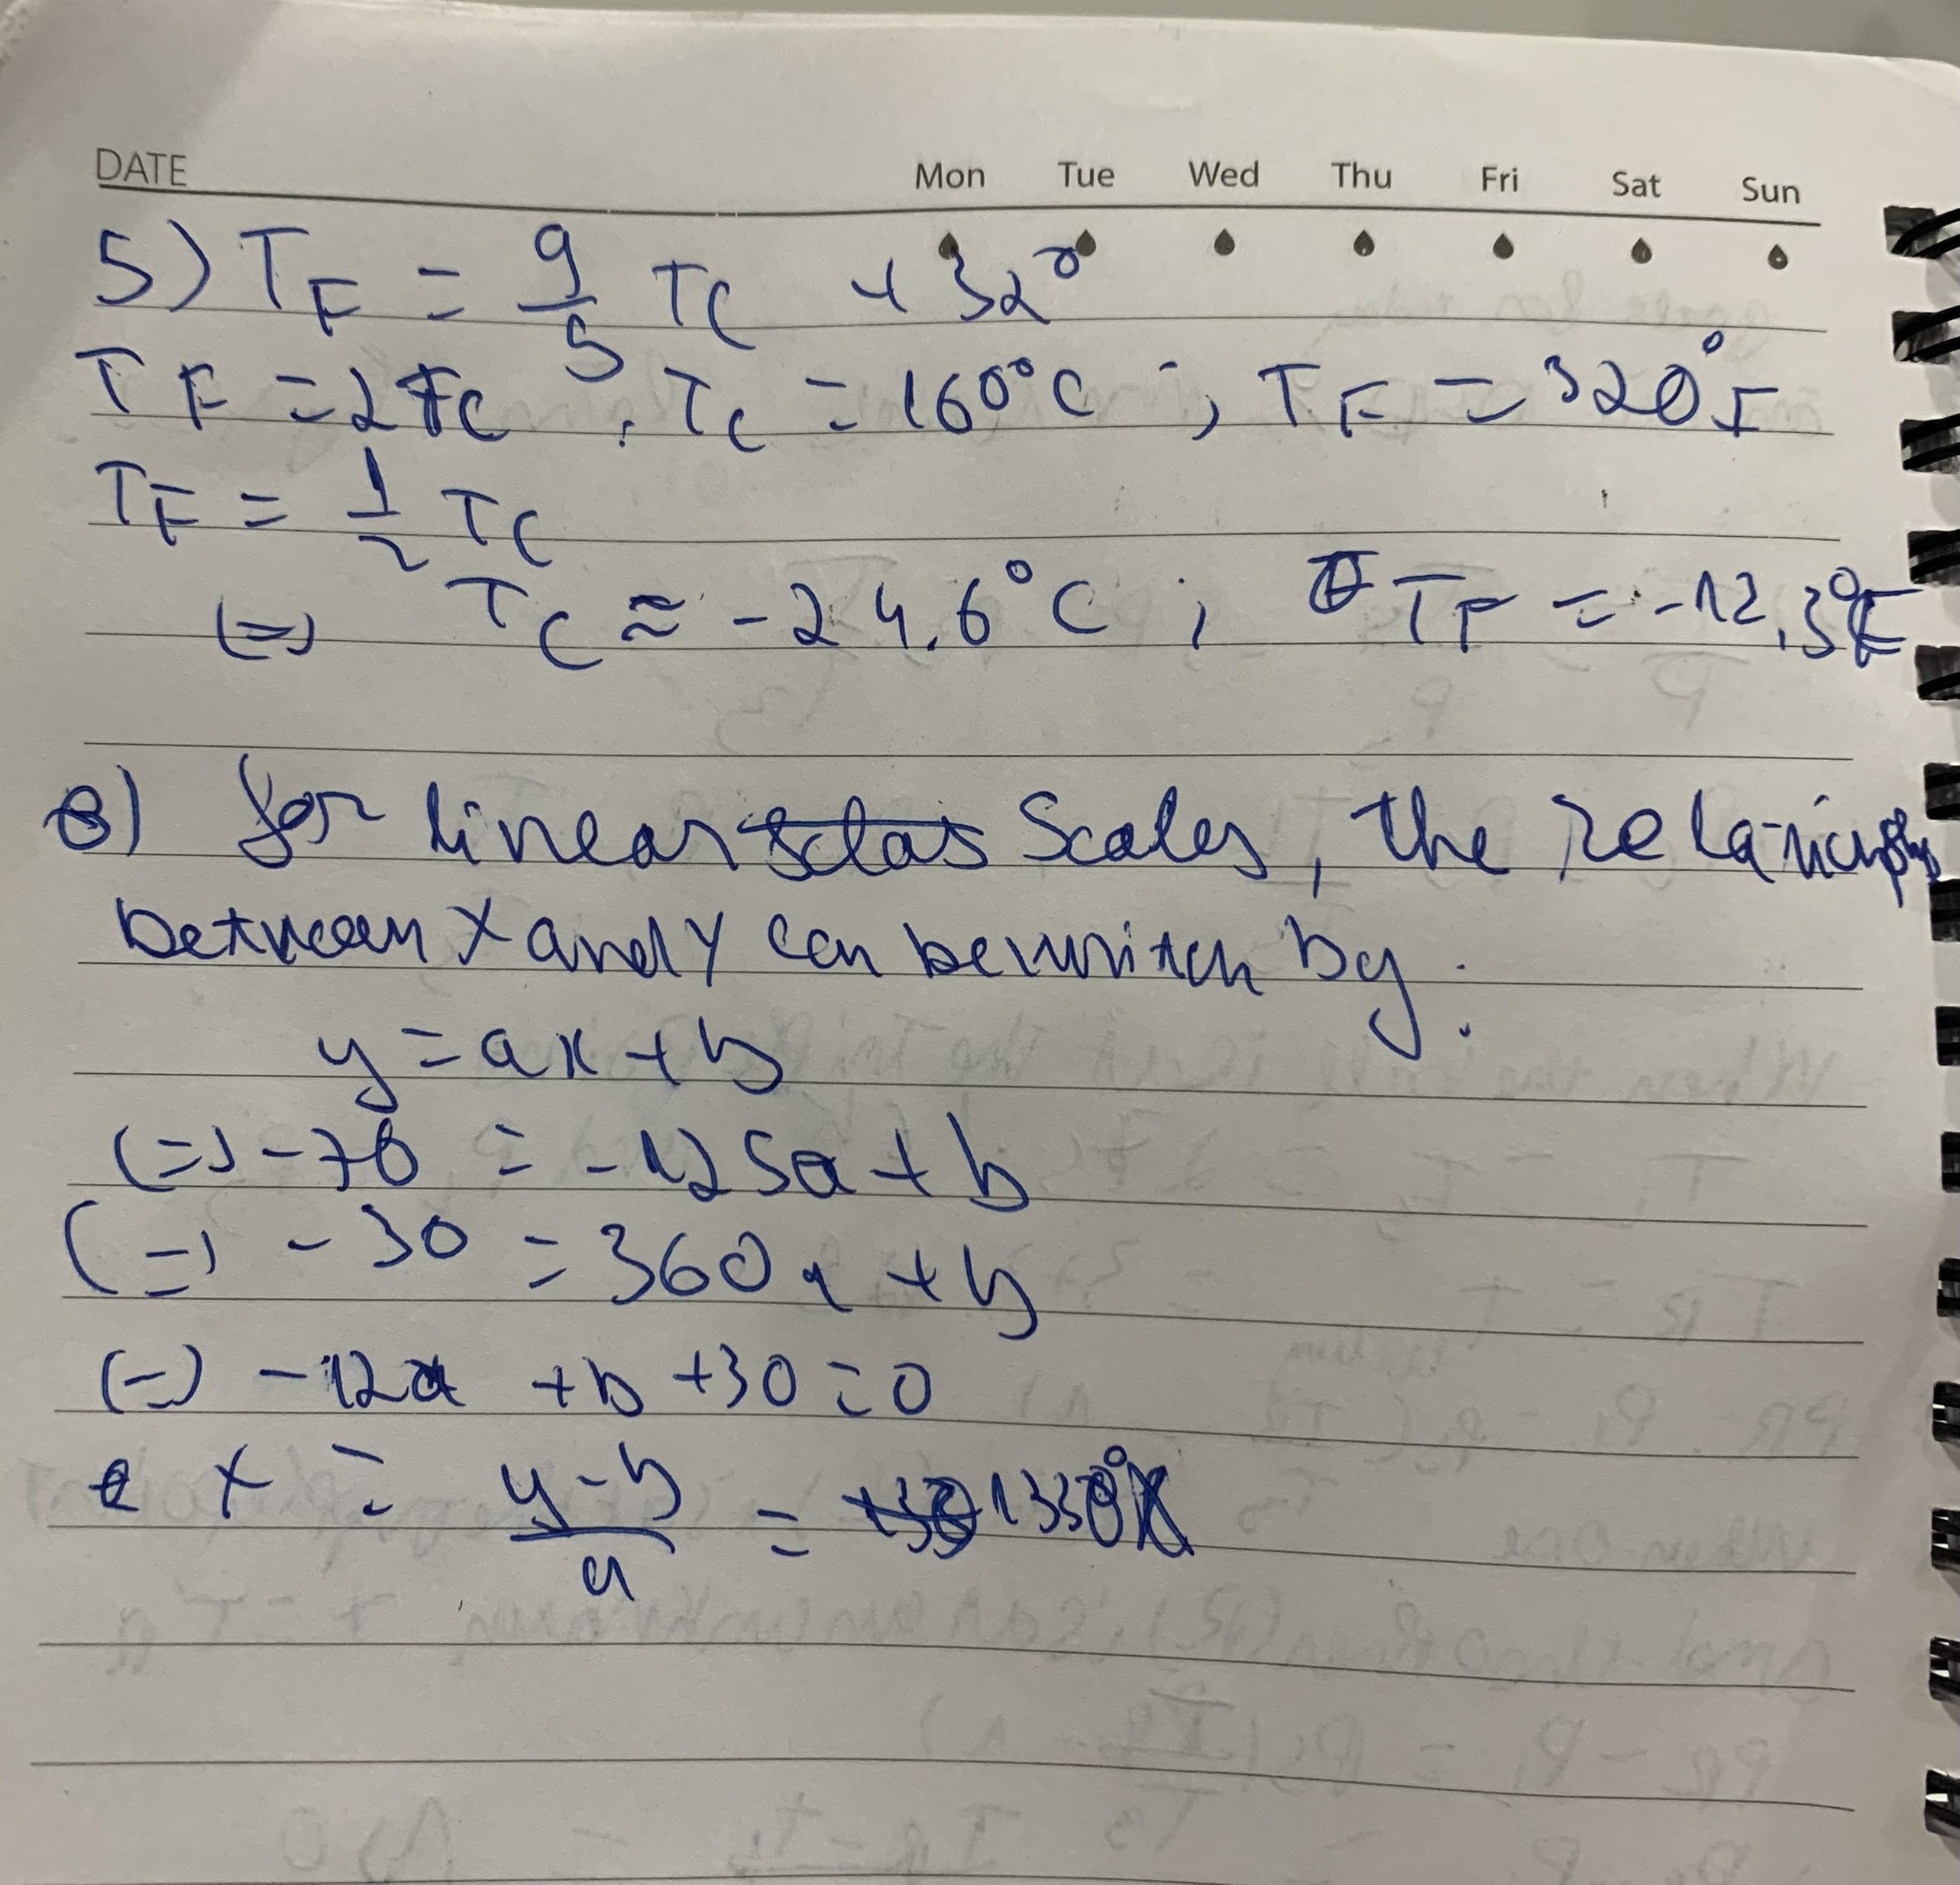 DATE Mon Tue Wed Thu Fri Sat Sun
5) TF = 9/5 TC + 32°
TF = 2TC, TC = 160°C ; TF = 320°F
TF = 1/2 TC
(=) TC ≈ -24.6°C ; TF = -12.3°F
8) for linear scales, the relationship
between X and Y can be written by:
y = ax + b
(=) -70 = -125a + b
(=) -30 = 360a + b
(=) -12a + b + 30 = 0
x = y-b/a = 1330°X